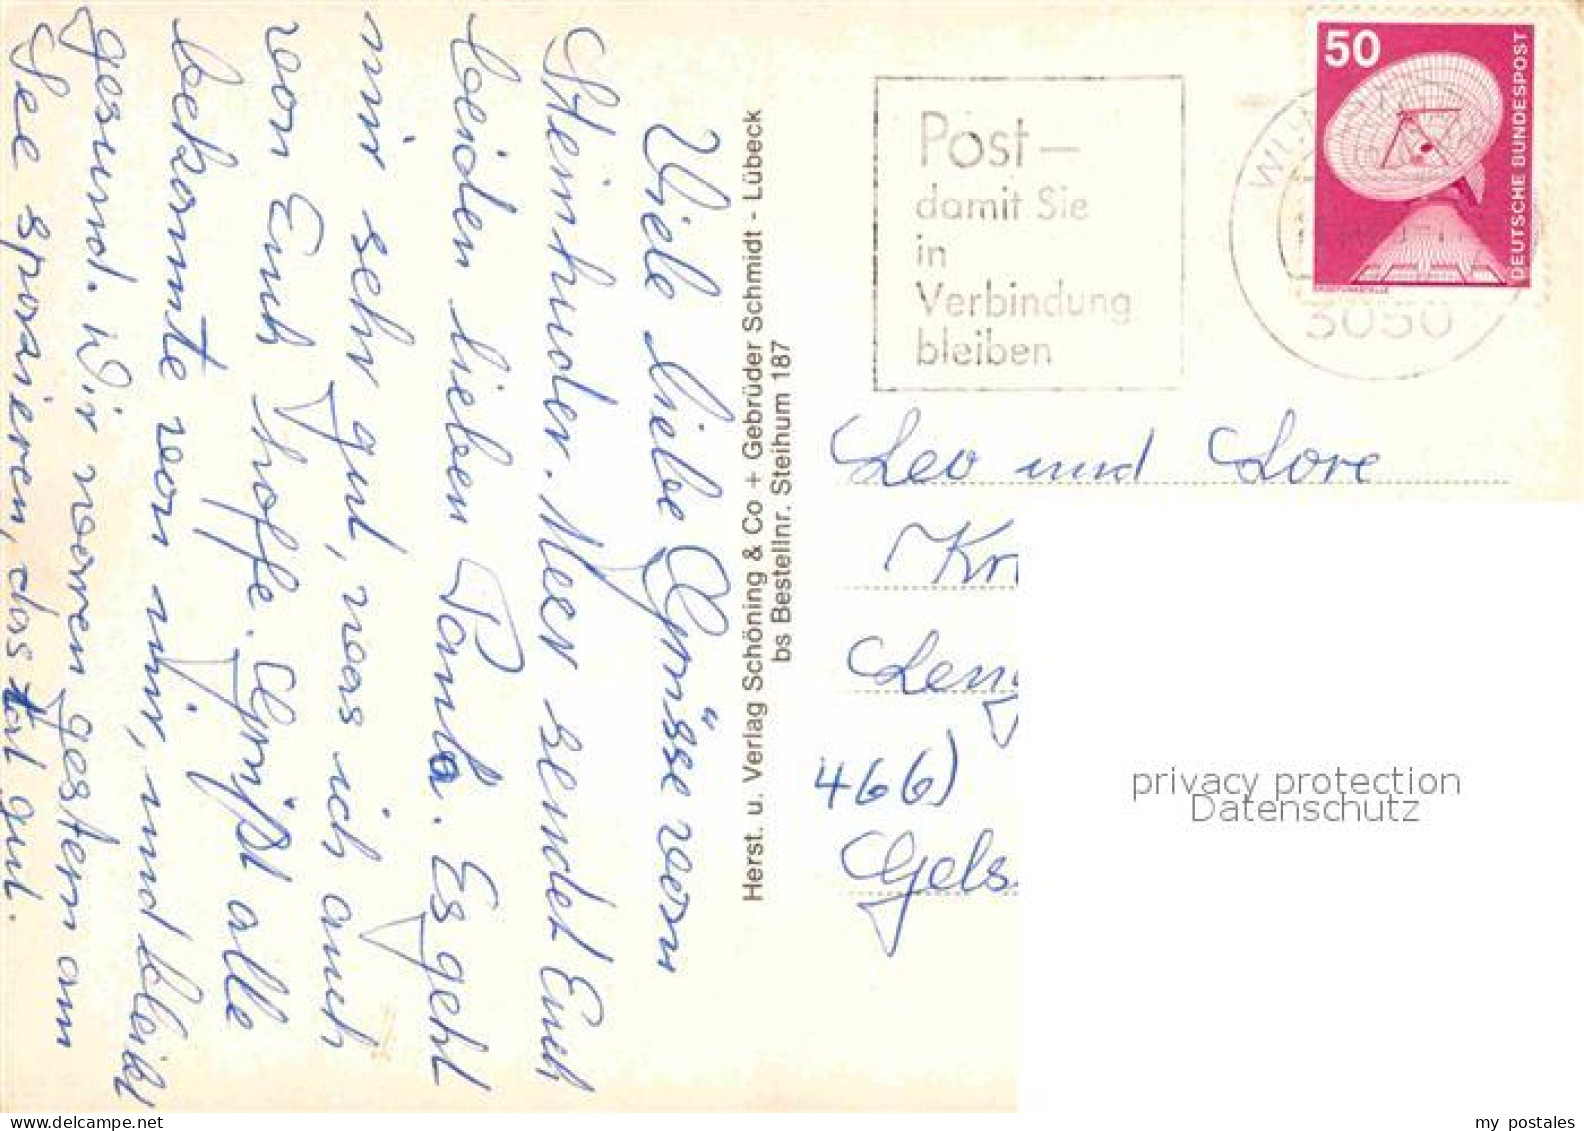 Viele liebe Grüsse vom
Steinhuder. Meer sendet Euch
beiden lieben Paula. Es geht
mir sehr gut, was ich auch
von Euch hoffe. Grüßt alle
bekannte von mir, und bleibt
gesund. Wir waren gestern am
See spazieren, das tat gut.
Herst. u. Verlag Schöning & Co + Gebrüder Schmidt - Lübeck
bs Bestellnr. Steihum 187
Post -
damit Sie
in
Verbindung
bleiben
50
DEUTSCHE BUNDESPOST
3050
Leo und Lore
Kr
Leng
466)
Gels.
privacy protection
Datenschutz
my postales
www.delcampe.net